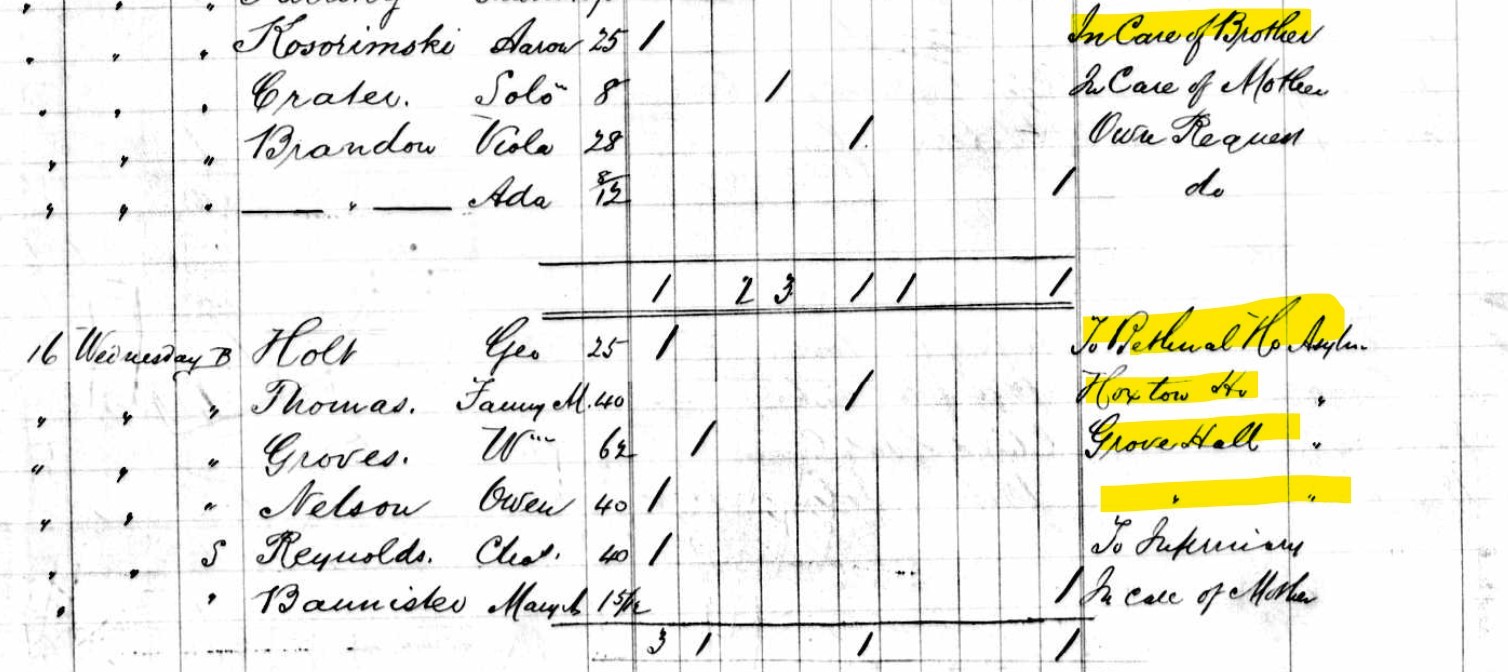 " " " Kosorimski Aaron 25 1 In Care of Brother
" " " Crater. Solo 8 1 In Care of Mother
" " " Brandon Viola 28 1 Own Request
" " " —— " —— Ada 8/12 1 do
1 2 3 1 1 1
16 Wednesday B Holt Geo 25 1 To Bethnal Ho Asylm
" " " Thomas. Fanny M. 40 1 Hoxton Ho "
" " " Groves. Wm 62 1 Grove Hall "
" " " Nelson Owen 40 1 " "
" " S Reynolds. Chas. 40 1 To Infirmary
" " Bannister Mary A 15/12 1 In care of Mother
3 1 1 1